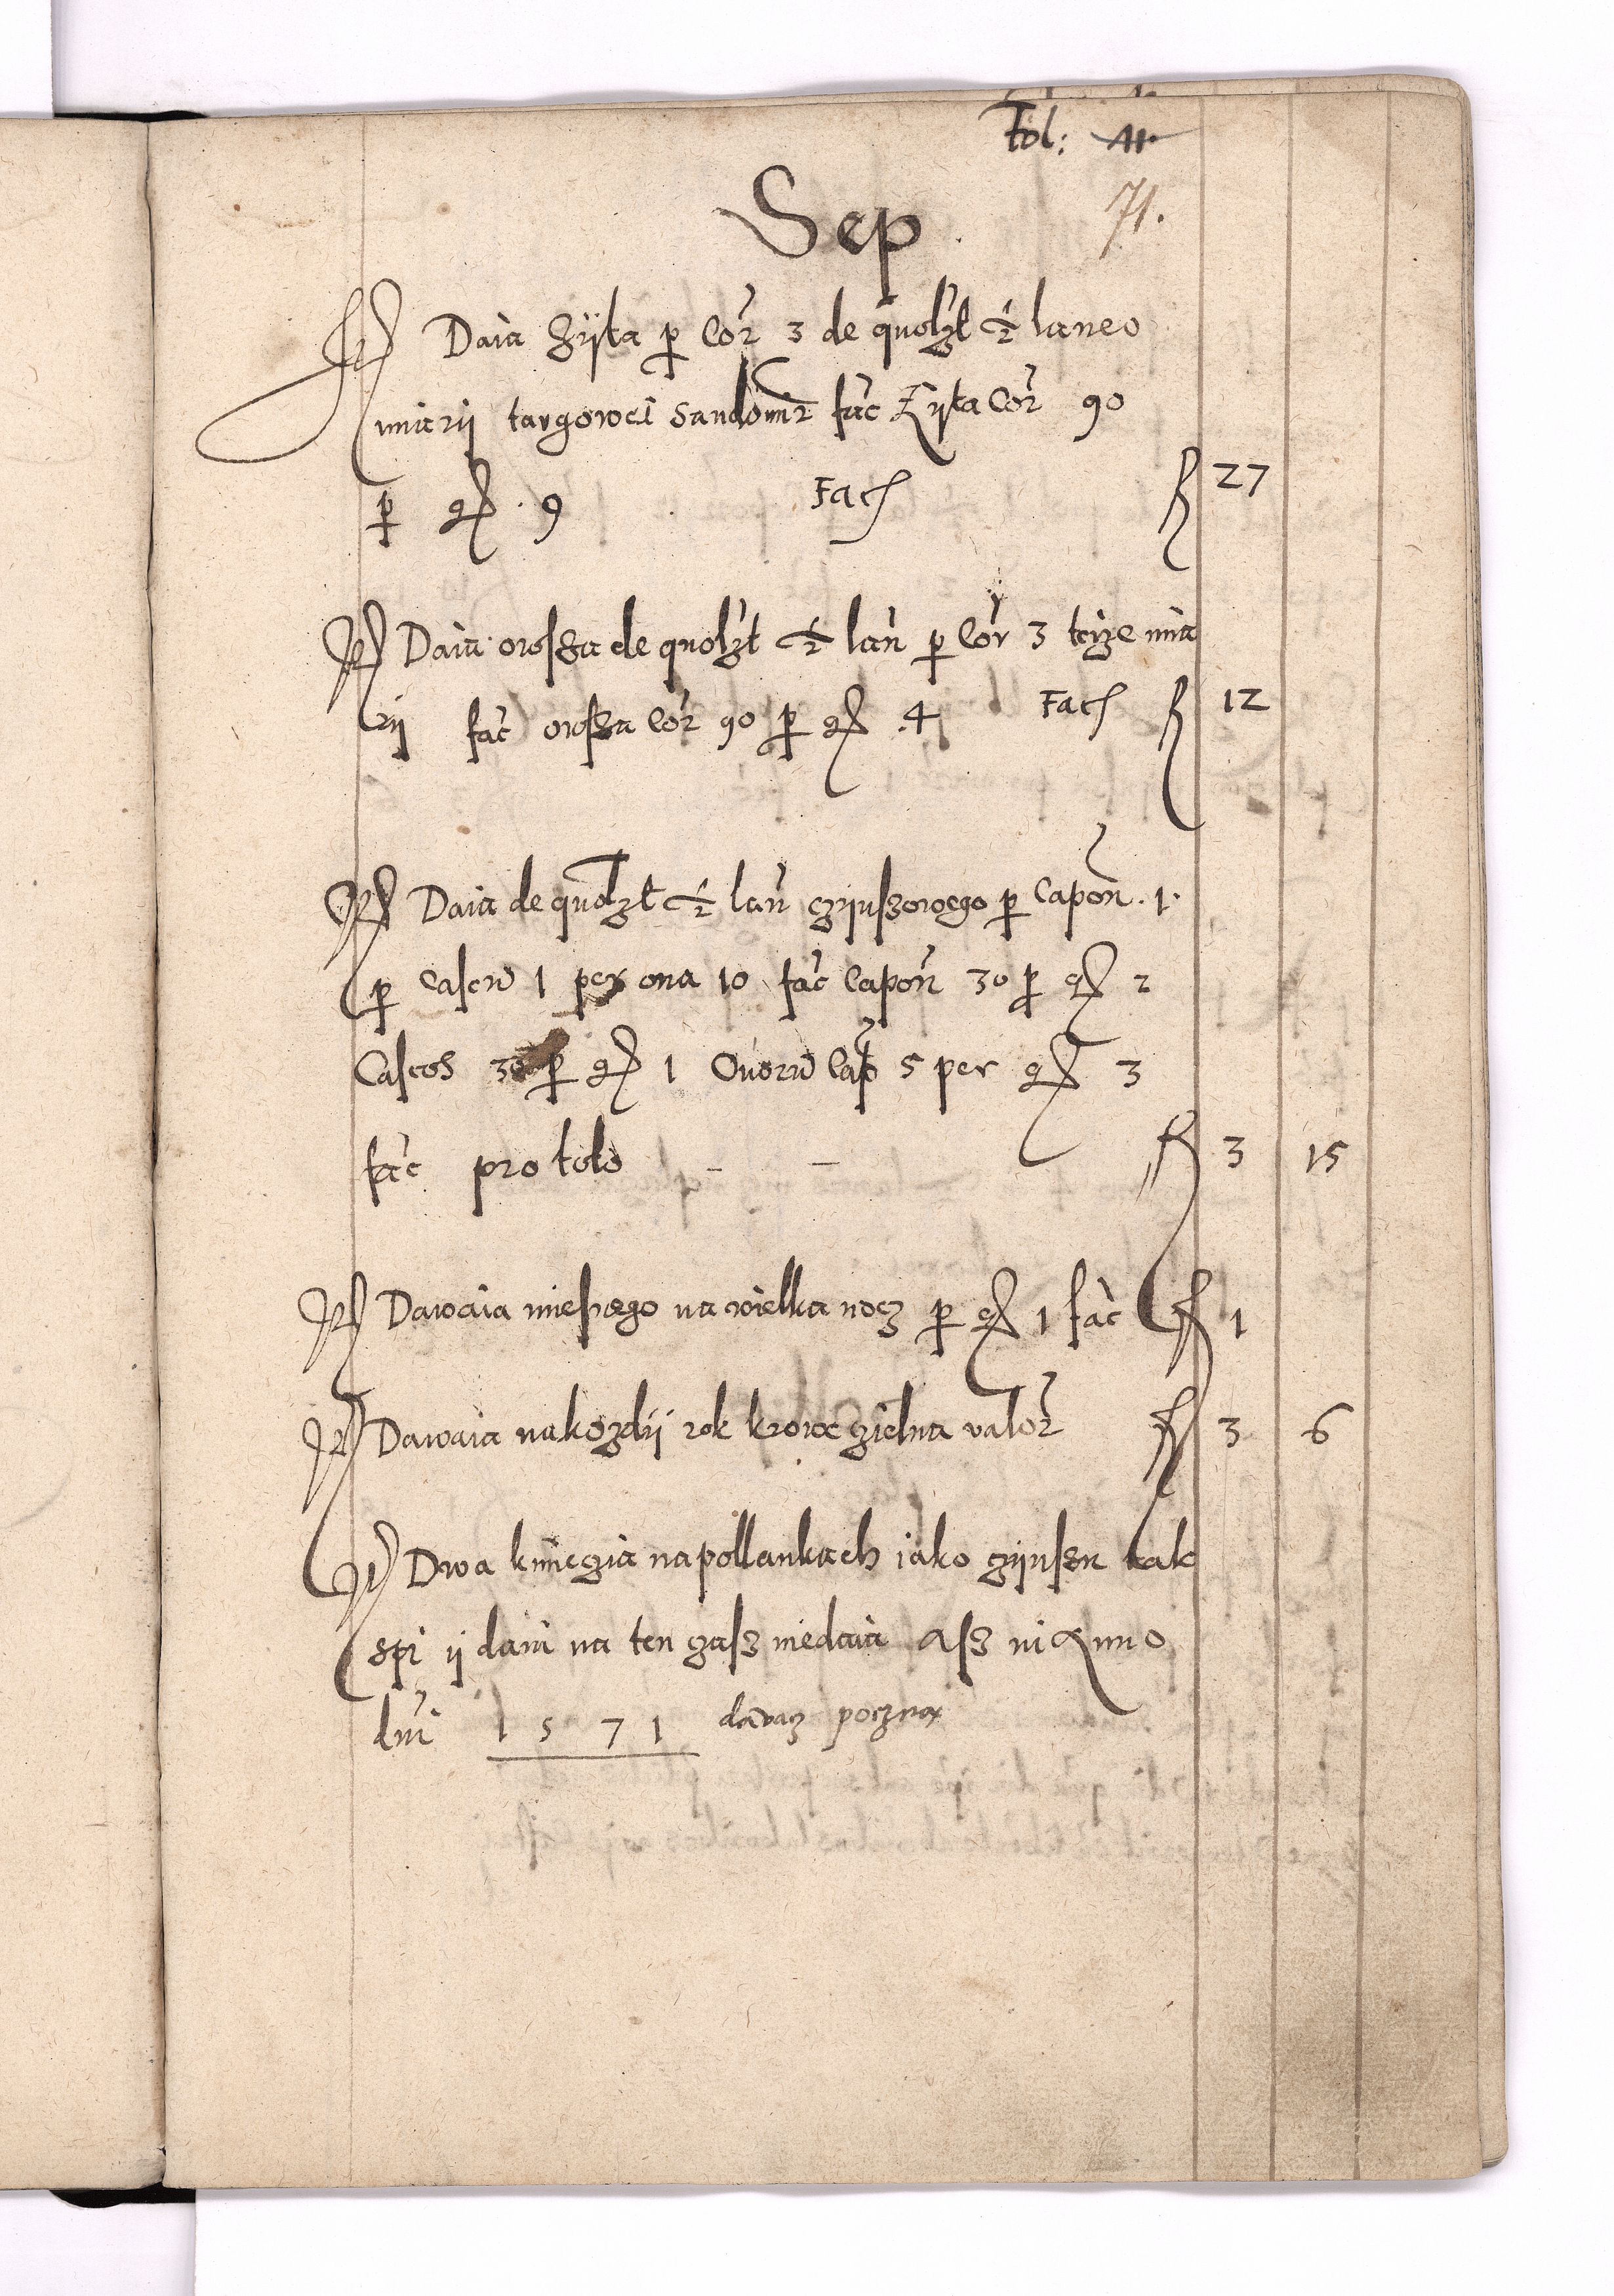 Fol: 41.
71.
Sep.
Jt Daia Zÿta p Cor 3 de quolzt ½ laneo
miarij targowei Sandomir fac Zÿta Cor 90
p gr. 9 Fac fl 27
Jt Daia owsza de quolzt ½ lan p Cor 3 teize mia
rij fac owsza Cor 90 p gr 4 Fac fl 12
Jt Daia de quolzt ½ lan czijnszowego p Capon. 1.
p Caseu 1 per ona 10 fac Capon 30 p gr 2
Caseos 30 p gr 1 Ouoru Cas 5 per gr 3
fac pro toto - - fl 3 15
Jt Dawaia miesnego na wielka nocz p gr 1 fac fl 1
Jt Dawaia na kozdij rok krowe zielna valor fl 3 6
Jt Dwa kmiezia na pollankach iako czijnszu tak
spi ij dani na ten zasz niedaia asz in Anno
dni 1571 dawacz poczna